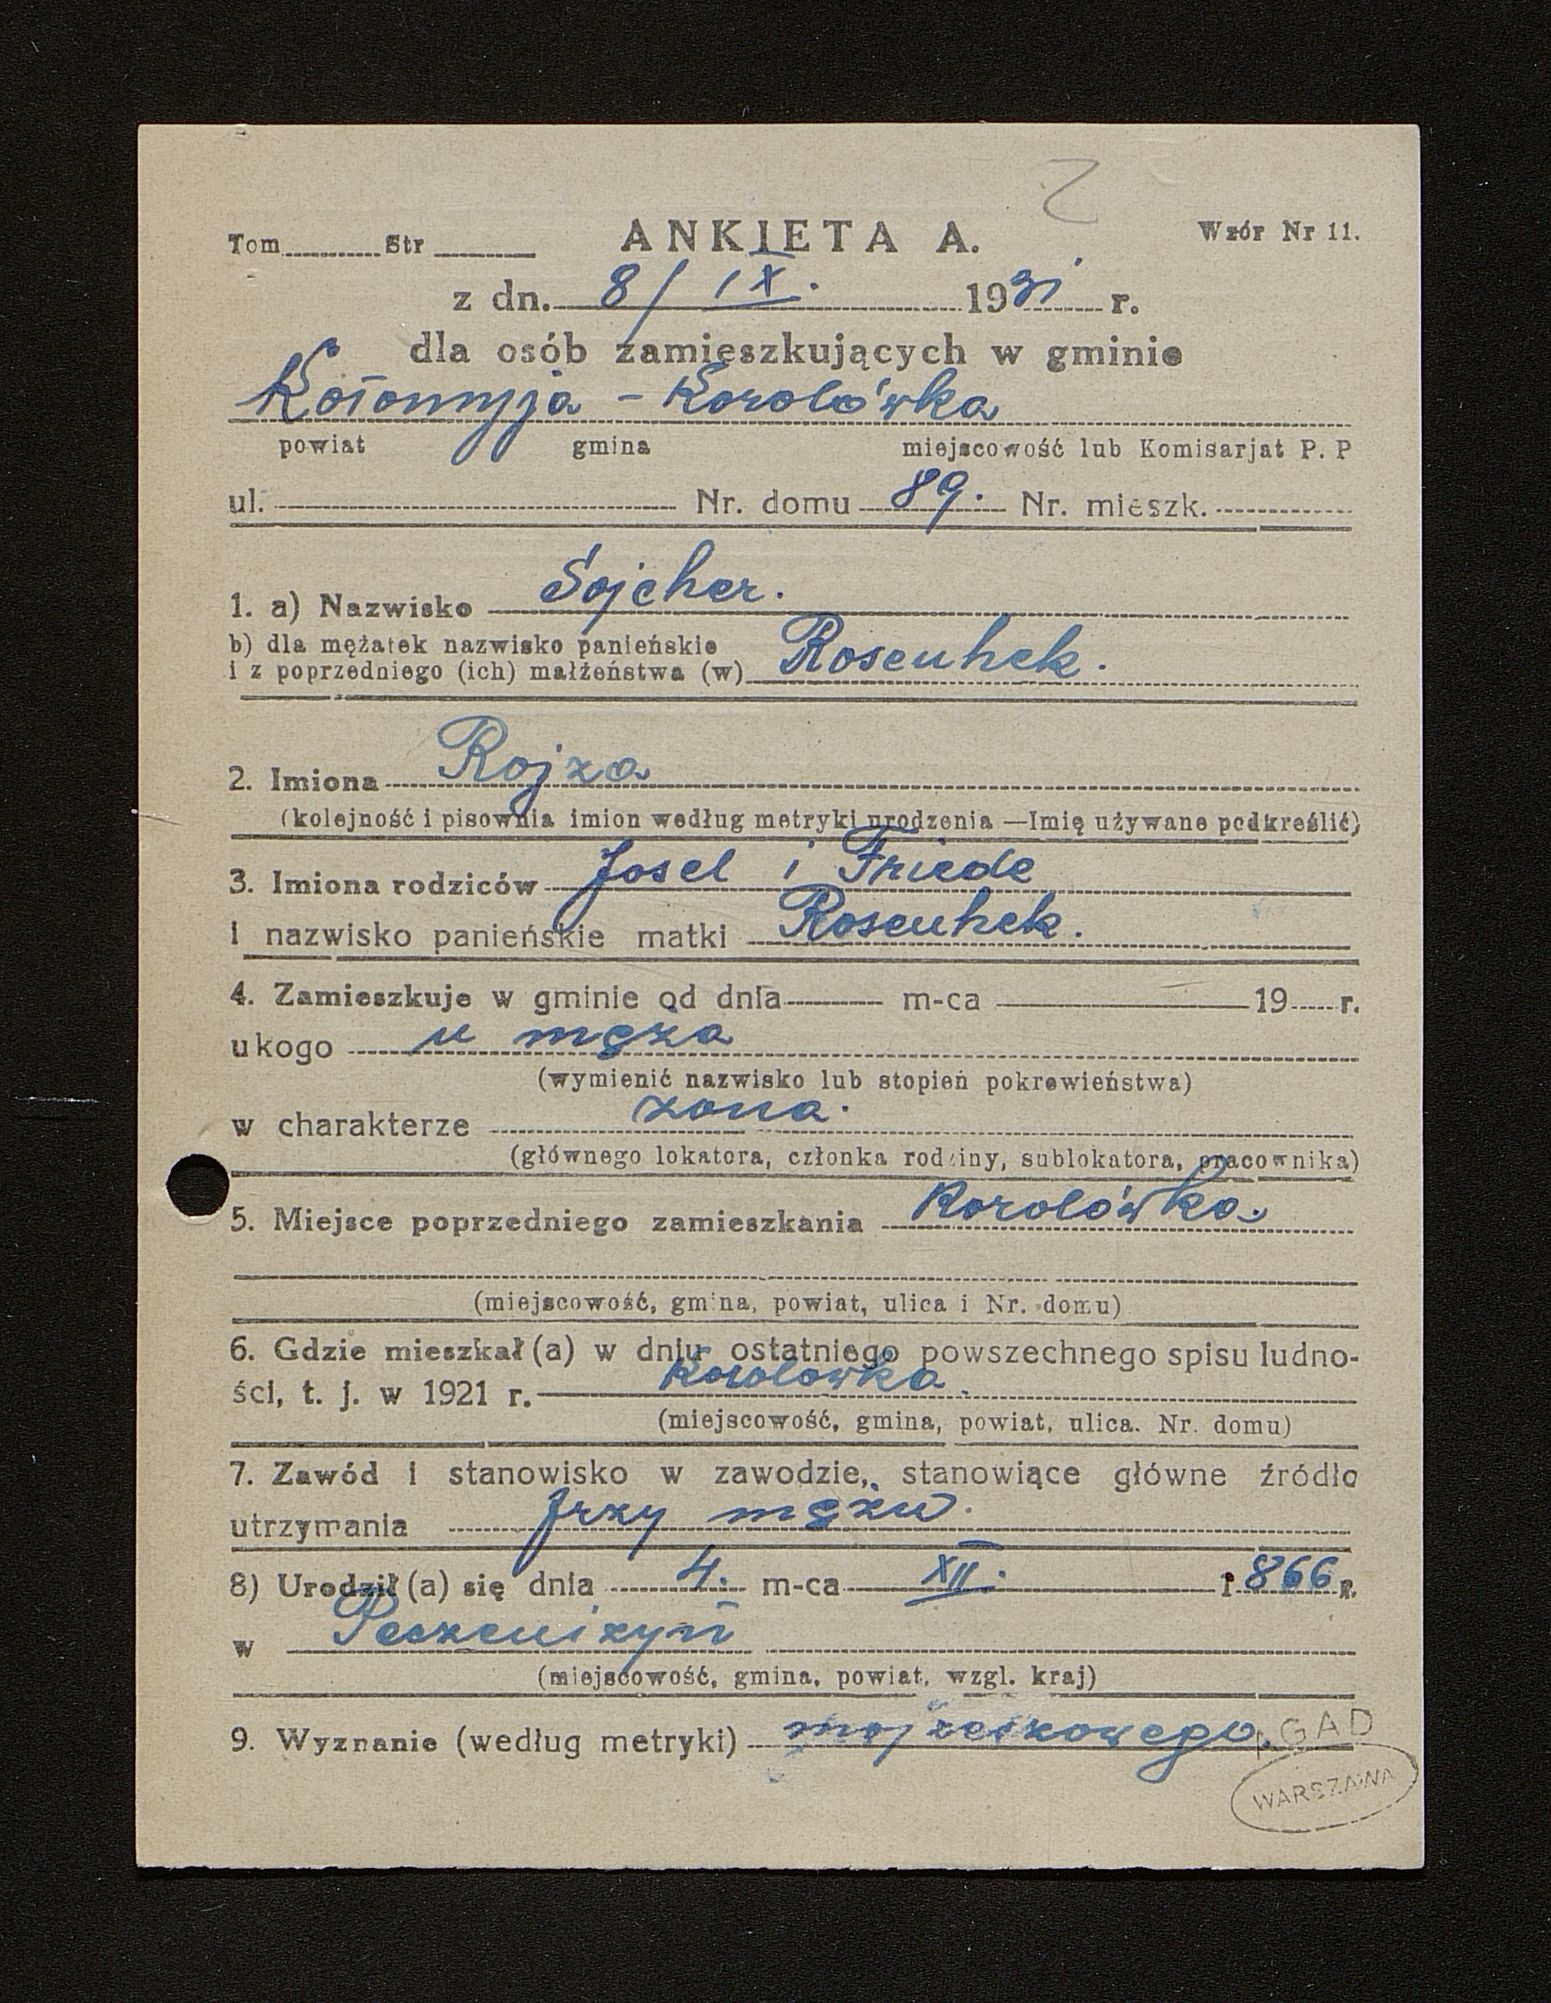 2
Tom Str ANKIETA A. Wzór Nr 11.
z dn. 8/IX. 1931 r.
dla osób zamieszkujących w gminie
Kołomyja - Korolówka
powiat gmina miejscowość lub Komisarjat P. P
ul. Nr. domu 89. Nr. mieszk.
1. a) Nazwisko Sojcher.
b) dla mężatek nazwisko panieńskie
i z poprzedniego (ich) małżeństwa (w) Rosenhek.
2. Imiona Rojza
(kolejność i pisownia imion według metryki urodzenia —Imię używane podkreślić)
3. Imiona rodziców Josel i Friede
i nazwisko panieńskie matki Rosenhek.
4. Zamieszkuje w gminie od dnia m-ca 19 r.
u kogo u męża
(wymienić nazwisko lub stopień pokrewieństwa)
w charakterze żona.
(głównego lokatora, członka rodziny, sublokatora, pracownika)
5. Miejsce poprzedniego zamieszkania Korolówka.
(miejscowość, gmina, powiat, ulica i Nr. domu)
6. Gdzie mieszkał (a) w dniu ostatniego powszechnego spisu ludno-
ści, t. j. w 1921 r. Korolowka.
(miejscowość, gmina, powiat, ulica. Nr. domu)
7. Zawód i stanowisko w zawodzie, stanowiące główne źródło
utrzymania przy mężu.
8) Urodził (a) się dnia 4. m-ca XII. 1866 r.
w Peczeniżyn
(miejscowość, gmina, powiat, wzgl. kraj)
9. Wyznanie (według metryki) mojżeszowego.
AGAD
WARSZAWA